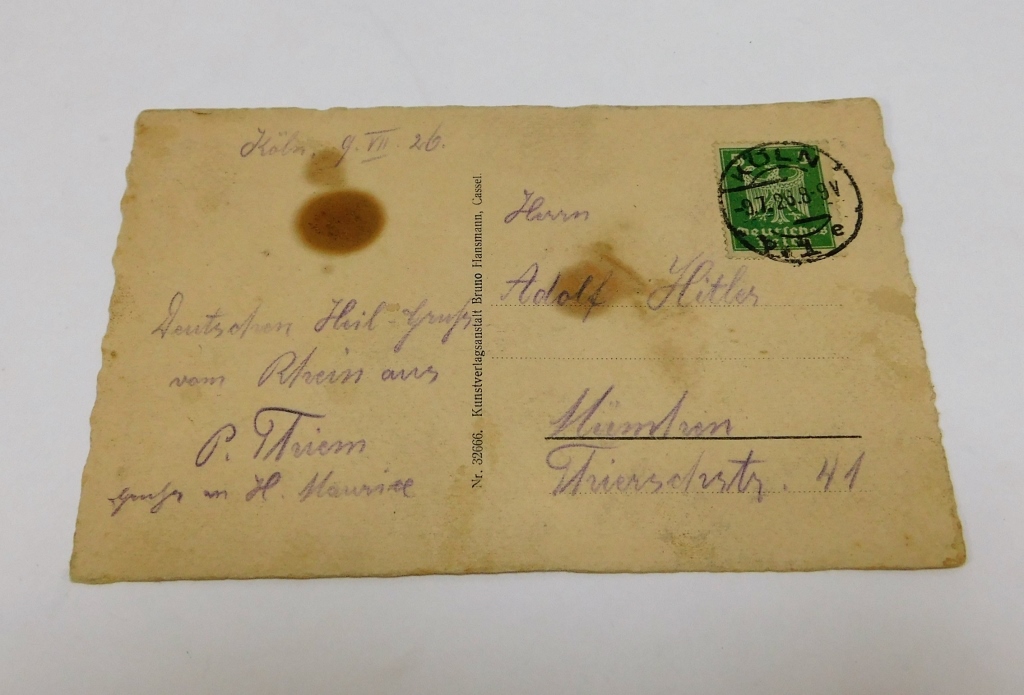 Köln, 9. VII. 26.
Deutschen Heil-Gruß
vom Rhein aus
P. Thiem
Gruß an H. Maurice
Nr. 32666. Kunstverlagsanstalt Bruno Hansmann, Cassel.
KÖLN
-9.7.26.8-9V
e
Herrn
Adolf Hitler
München
Thierschstr. 41